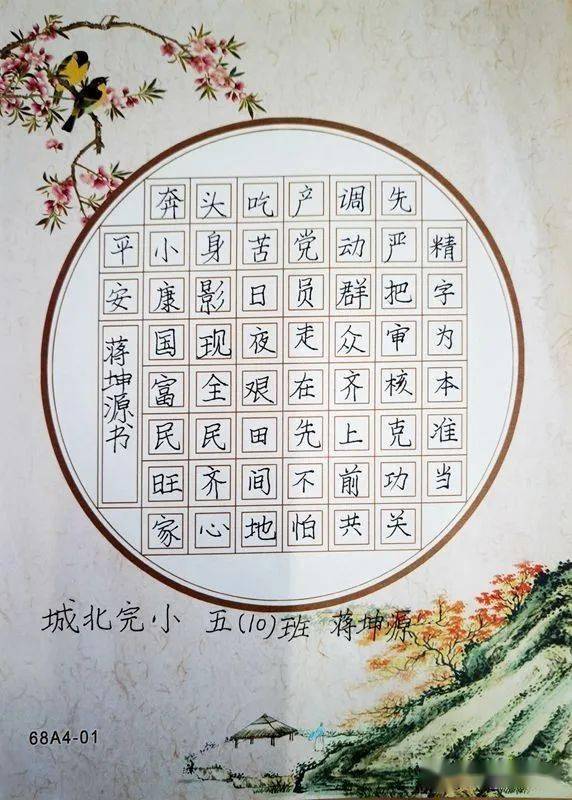 精字为本准当
先严把审核克功关
调动群众齐上前共
产党员走在先不怕
吃苦日夜艰田间地
头身影现全民齐心
奔小康国富民旺家
平安
蒋坤源书
城北完小 五(10)班 蒋坤源
68A4-01